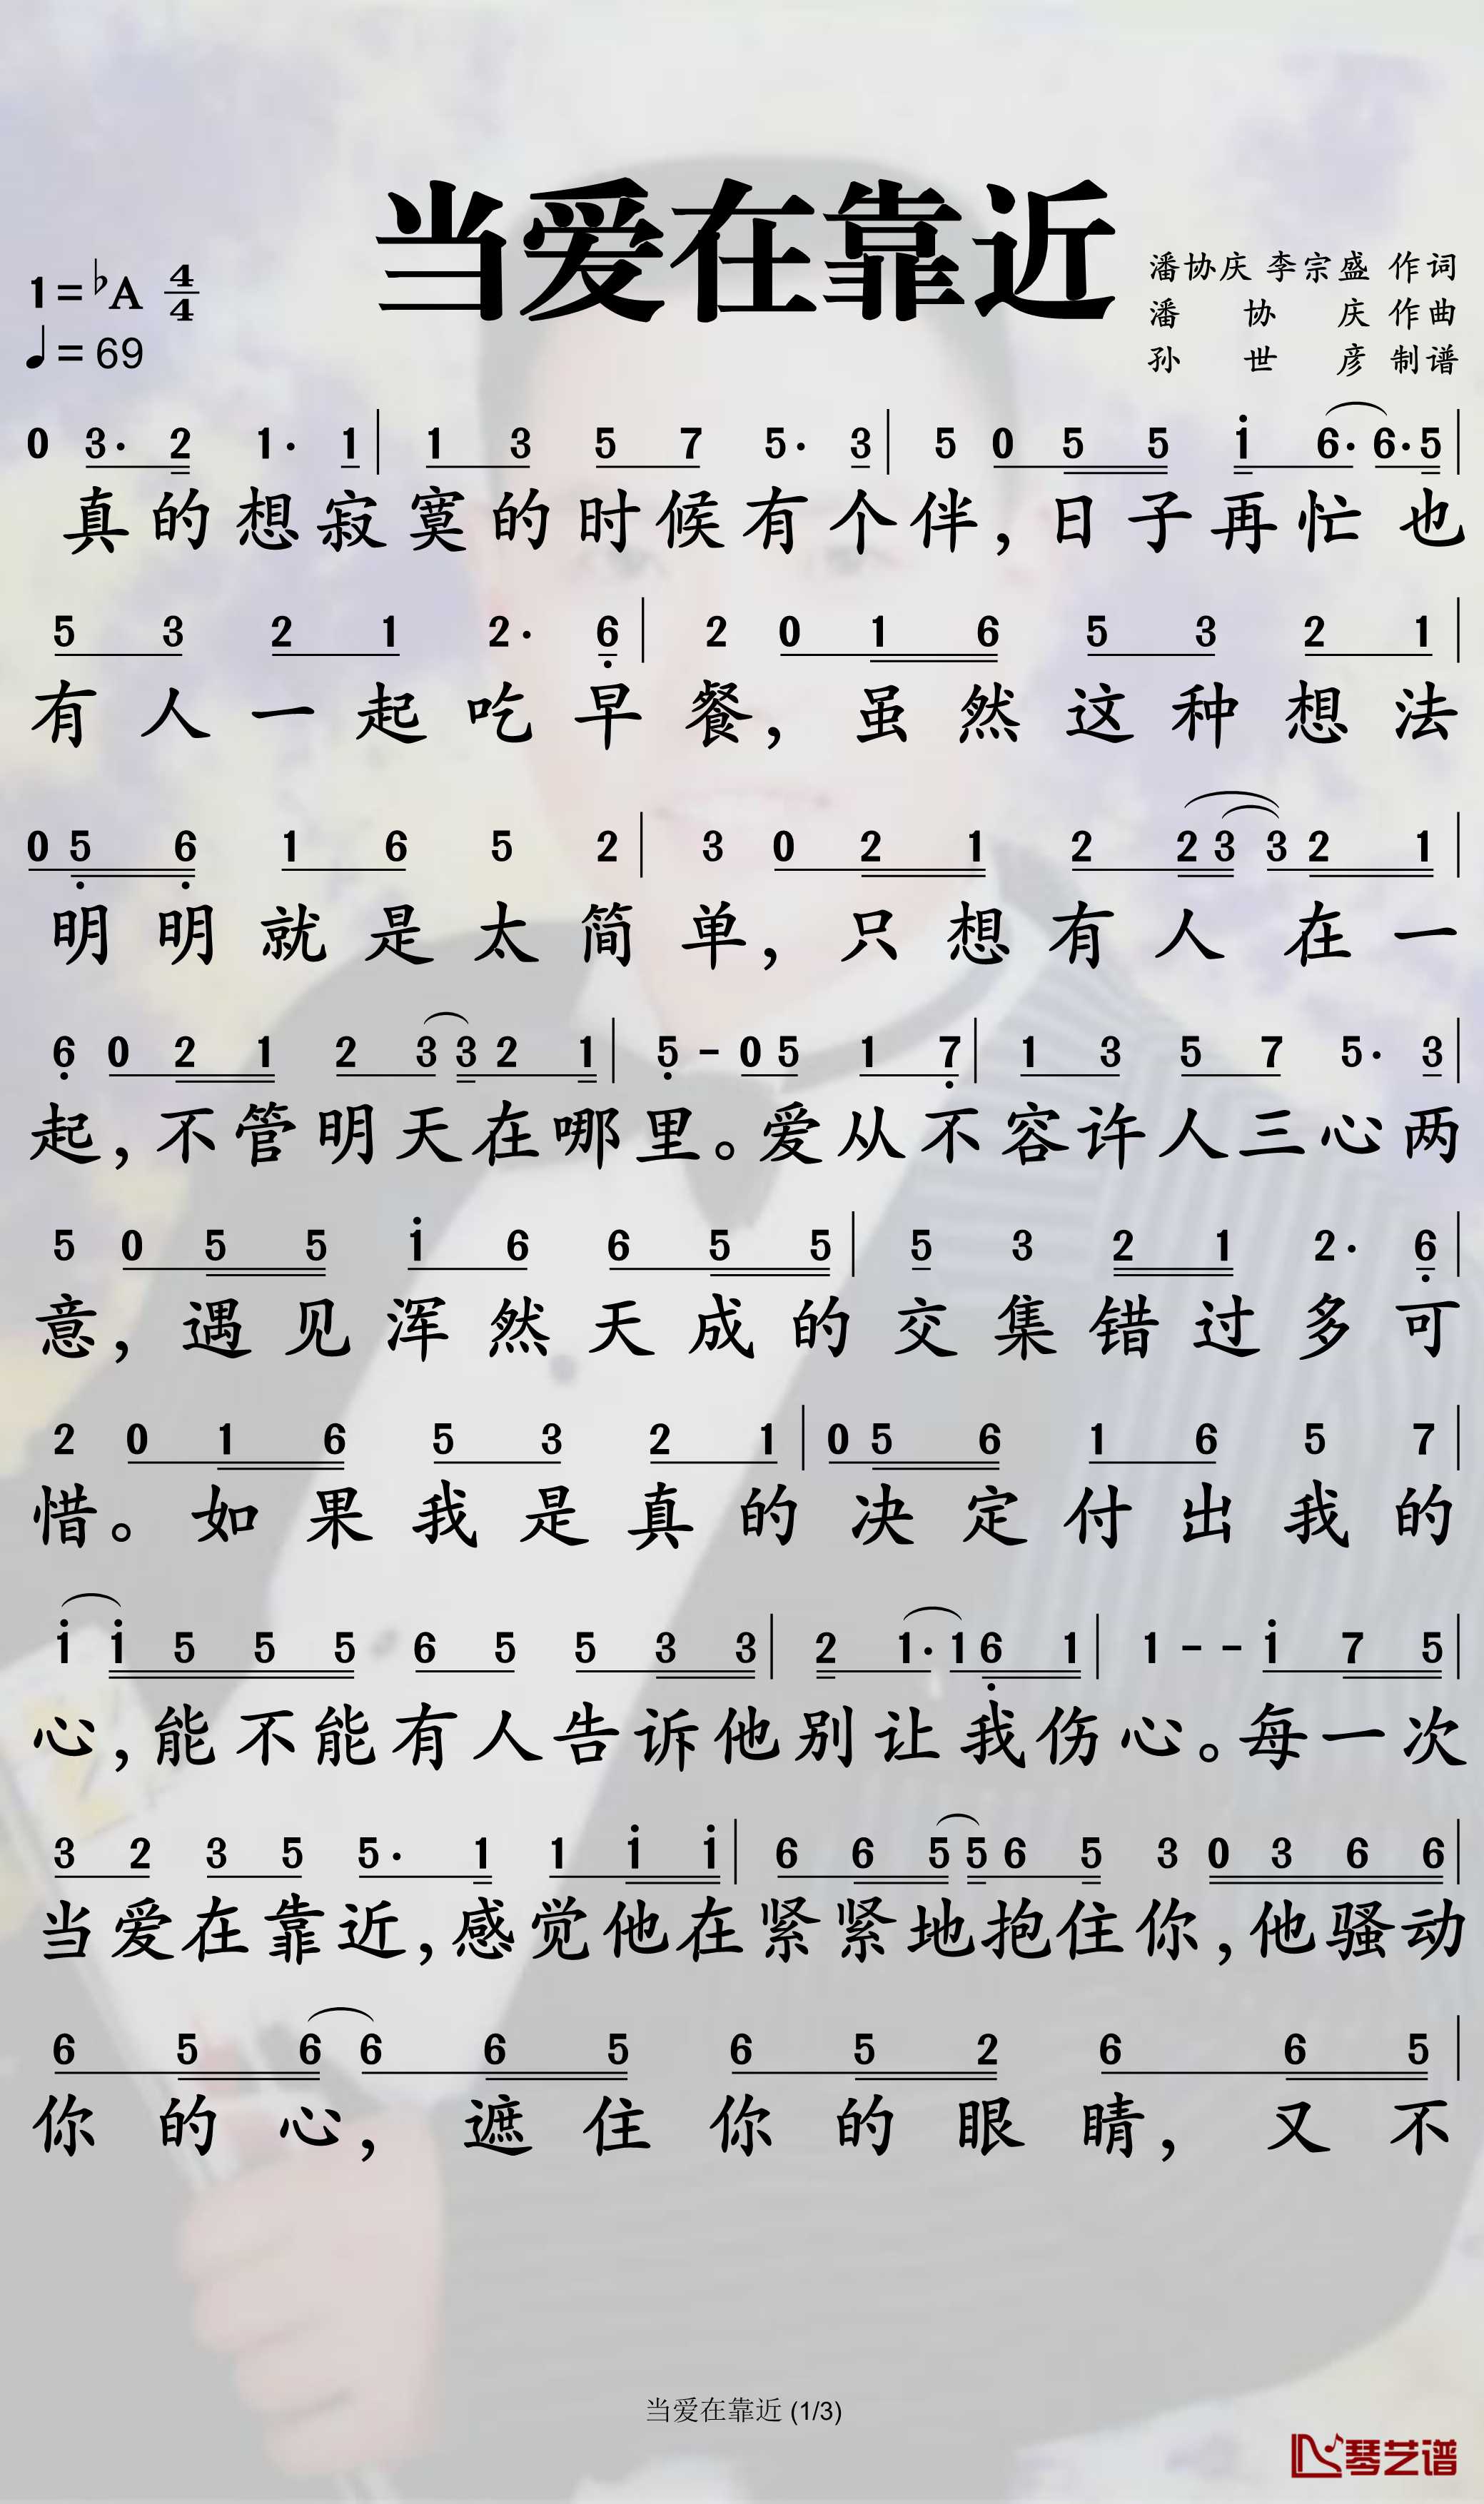 当爱在靠近
潘协庆 李宗盛 作词
1=♭A 4/4
潘 协 庆 作曲
♩=69
孙 世 彦 制谱
0 3· 2 1· 1 | 1 3 5 7 5· 3 | 5 0 5 5 i 6· 6· 5 |
真的想寂寞的时候有个伴，日子再忙也
5 3 2 1 2· 6 | 2 0 1 6 5 3 2 1 |
有人一起吃早餐，虽然这种想法
0 5 6 1 6 5 2 | 3 0 2 1 2 2 3 3 2 1 |
明明就是太简单，只想有人在一
6 0 2 1 2 3 3 2 1 | 5 - 0 5 1 7 | 1 3 5 7 5· 3 |
起，不管明天在哪里。爱从不容许人三心两
5 0 5 5 i 6 6 5 5 | 5 3 2 1 2· 6 |
意，遇见浑然天成的交集错过多可
2 0 1 6 5 3 2 1 | 0 5 6 1 6 5 7 |
惜。如果我是真的决定付出我的
i i 5 5 5 6 5 5 3 3 | 2 1· 1 6 1 | 1 - - i 7 5 |
心，能不能有人告诉他别让我伤心。每一次
3 2 3 5 5· 1 1 i i | 6 6 5 5 6 5 3 0 3 6 6 |
当爱在靠近，感觉他在紧紧地抱住你，他骚动
6 5 6 6 6 5 6 5 2 6 6 5 |
你的心，遮住你的眼睛，又不
当爱在靠近 (1/3)
琴艺谱